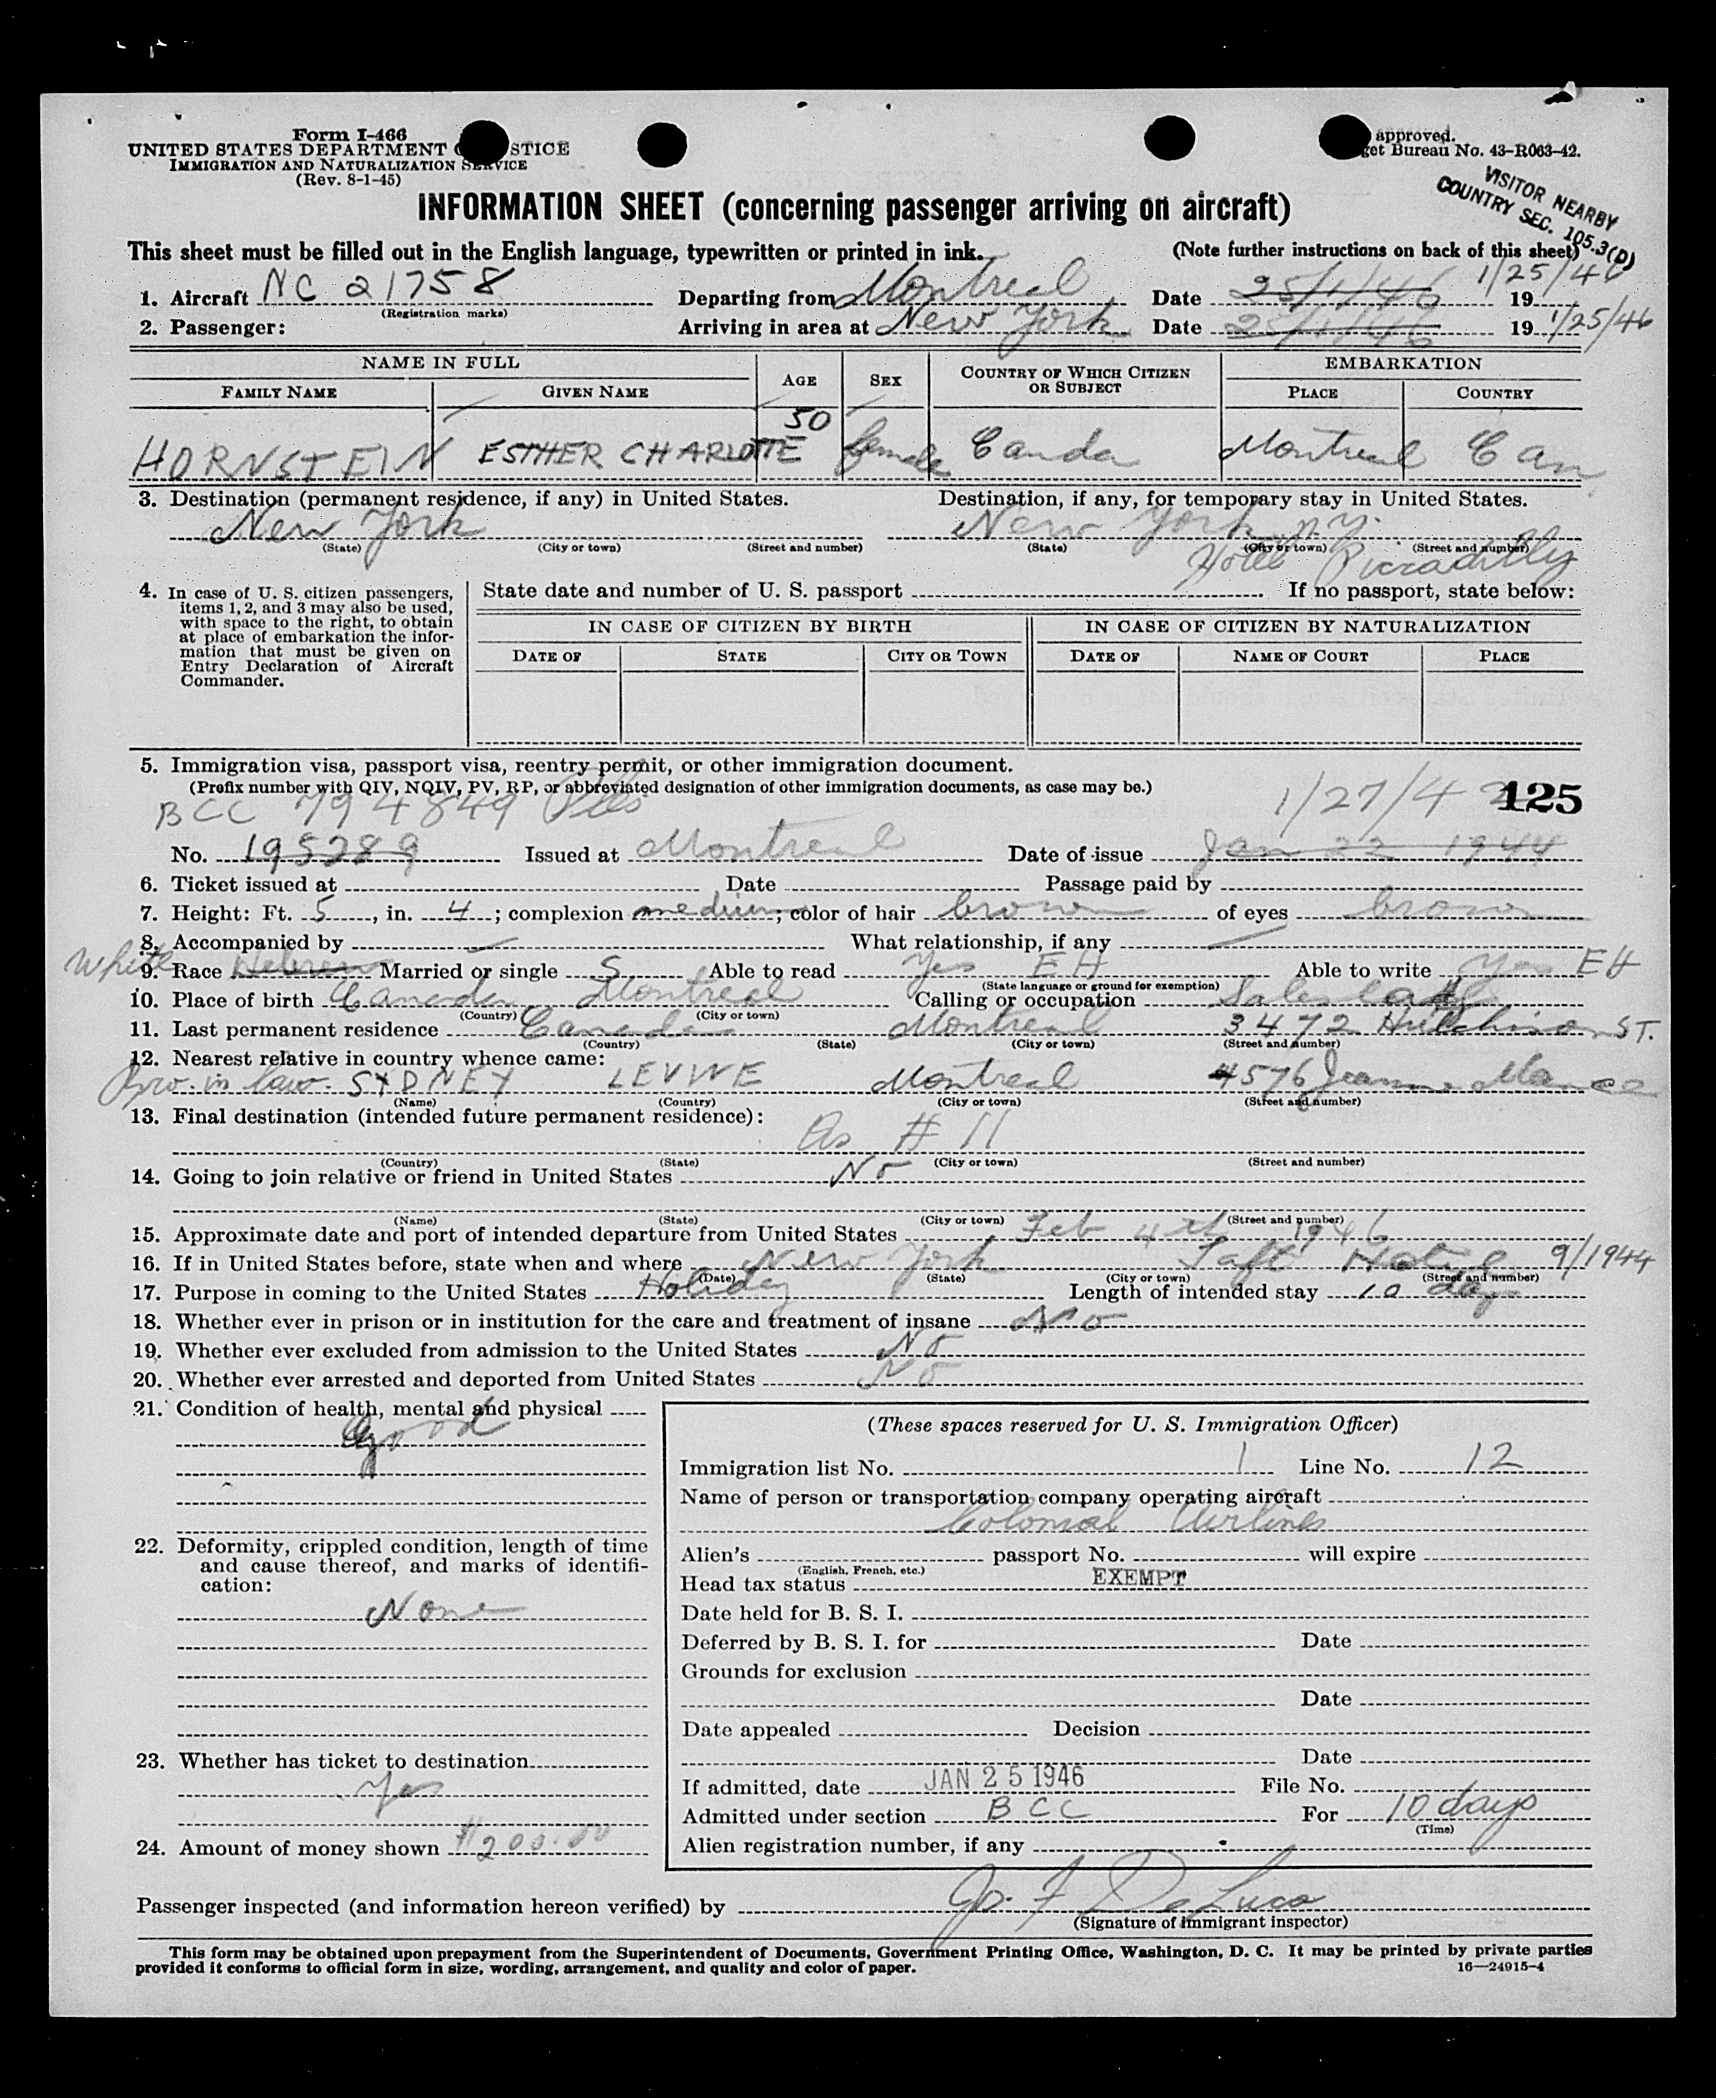 Form I-466
UNITED STATES DEPARTMENT STICE
IMMIGRATION AND NATURALIZATION SERVICE
(Rev. 8-1-45)
approved.
get Bureau No. 43-R063-42.
VISITOR NEARBY
COUNTRY SEC. 105.3(D)
INFORMATION SHEET (concerning passenger arriving on aircraft)
This sheet must be filled out in the English language, typewritten or printed in ink. (Note further instructions on back of this sheet)
1. Aircraft NC 21758 Departing from Montreal Date 25/1/46 19 1/25/46
(Registration marks)
2. Passenger: Arriving in area at New York Date 25/1/46 19 1/25/46
NAME IN FULL AGE SEX COUNTRY OF WHICH CITIZEN OR SUBJECT EMBARKATION
FAMILY NAME GIVEN NAME PLACE COUNTRY
HORNSTEIN ESTHER CHARLOTTE 50 female Canda Montreal Can
3. Destination (permanent residence, if any) in United States. Destination, if any, for temporary stay in United States.
New York New York N.Y.
(State) (City or town) (Street and number) (State) (City or town) (Street and number)
Hotel Piccadilly
4. In case of U. S. citizen passengers, items 1, 2, and 3 may also be used, with space to the right, to obtain at place of embarkation the information that must be given on Entry Declaration of Aircraft Commander.
State date and number of U. S. passport If no passport, state below:
IN CASE OF CITIZEN BY BIRTH IN CASE OF CITIZEN BY NATURALIZATION
DATE OF STATE CITY OR TOWN DATE OF NAME OF COURT PLACE
5. Immigration visa, passport visa, reentry permit, or other immigration document.
(Prefix number with QIV, NQIV, PV, RP, or abbreviated designation of other immigration documents, as case may be.)
BCC 794849 1/27/4 125
No. 195289 Issued at Montreal Date of issue Jan 22 1944
6. Ticket issued at Date Passage paid by
7. Height: Ft. 5, in. 4; complexion medium; color of hair brown of eyes brown
8. Accompanied by — What relationship, if any —
White
9. Race Hebrew Married or single S Able to read Yes EH Able to write Yes EH
(State language or ground for exemption)
10. Place of birth Canada Montreal Calling or occupation Saleslady
(Country) (City or town)
11. Last permanent residence Canada Montreal 3472 Hutchison ST.
(Country) (State) (City or town) (Street and number)
12. Nearest relative in country whence came:
Bro. in law. SYDNEY LEVINE Montreal 4576 Jeanne Mance
(Name) (Country) (City or town) (Street and number)
13. Final destination (intended future permanent residence):
As # 11
(Country) (State) (City or town) (Street and number)
14. Going to join relative or friend in United States No
(Name) (State) (City or town) (Street and number)
15. Approximate date and port of intended departure from United States Feb 4th 1946
16. If in United States before, state when and where New York Taft Hotel 9/1944
(Date) (State) (City or town) (Street and number)
17. Purpose in coming to the United States Holiday Length of intended stay 10 days
18. Whether ever in prison or in institution for the care and treatment of insane No
19. Whether ever excluded from admission to the United States No
20. Whether ever arrested and deported from United States No
21. Condition of health, mental and physical
Good
22. Deformity, crippled condition, length of time and cause thereof, and marks of identification:
None
23. Whether has ticket to destination
Yes
24. Amount of money shown $200.00
(These spaces reserved for U. S. Immigration Officer)
Immigration list No. 1 Line No. 12
Name of person or transportation company operating aircraft
Colonial Airlines
Alien's passport No. will expire
(English, French, etc.)
Head tax status EXEMPT
Date held for B. S. I.
Deferred by B. S. I. for Date
Grounds for exclusion
Date
Date appealed Decision
Date
If admitted, date JAN 25 1946 File No.
Admitted under section BCC For 10 days
(Time)
Alien registration number, if any
Passenger inspected (and information hereon verified) by Jo. F DeLuca
(Signature of immigrant inspector)
This form may be obtained upon prepayment from the Superintendent of Documents, Government Printing Office, Washington, D. C. It may be printed by private parties
provided it conforms to official form in size, wording, arrangement, and quality and color of paper. 16—24915-4